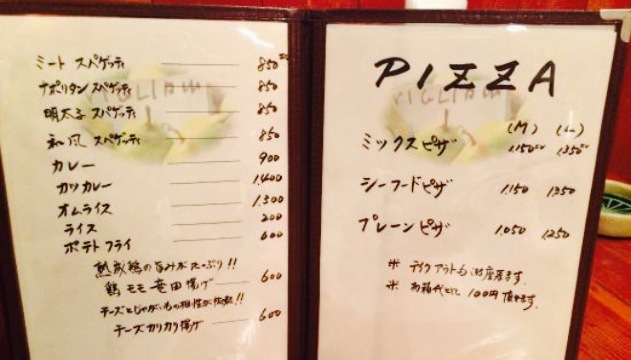 ミート スパゲッティ 850
ナポリタン スパゲッティ 850
明太子 スパゲッティ 850
和風 スパゲッティ 850
カレー 900
カツカレー 1,400
オムライス 1,300
ライス 200
ポテトフライ 600
熟成鶏の旨みがたっぷり!!
鶏モモ 竜田揚げ 600
チーズとじゃがいもの相性が抜群!!
チーズカリカリ揚げ 600
PIZZA
(M) (L)
ミックスピザ 1,150 1,350
シーフードピザ 1,150 1,350
プレーンピザ 1,050 1,250
※ テイクアウトも出来ます。
※ お箱代として100円頂きます。